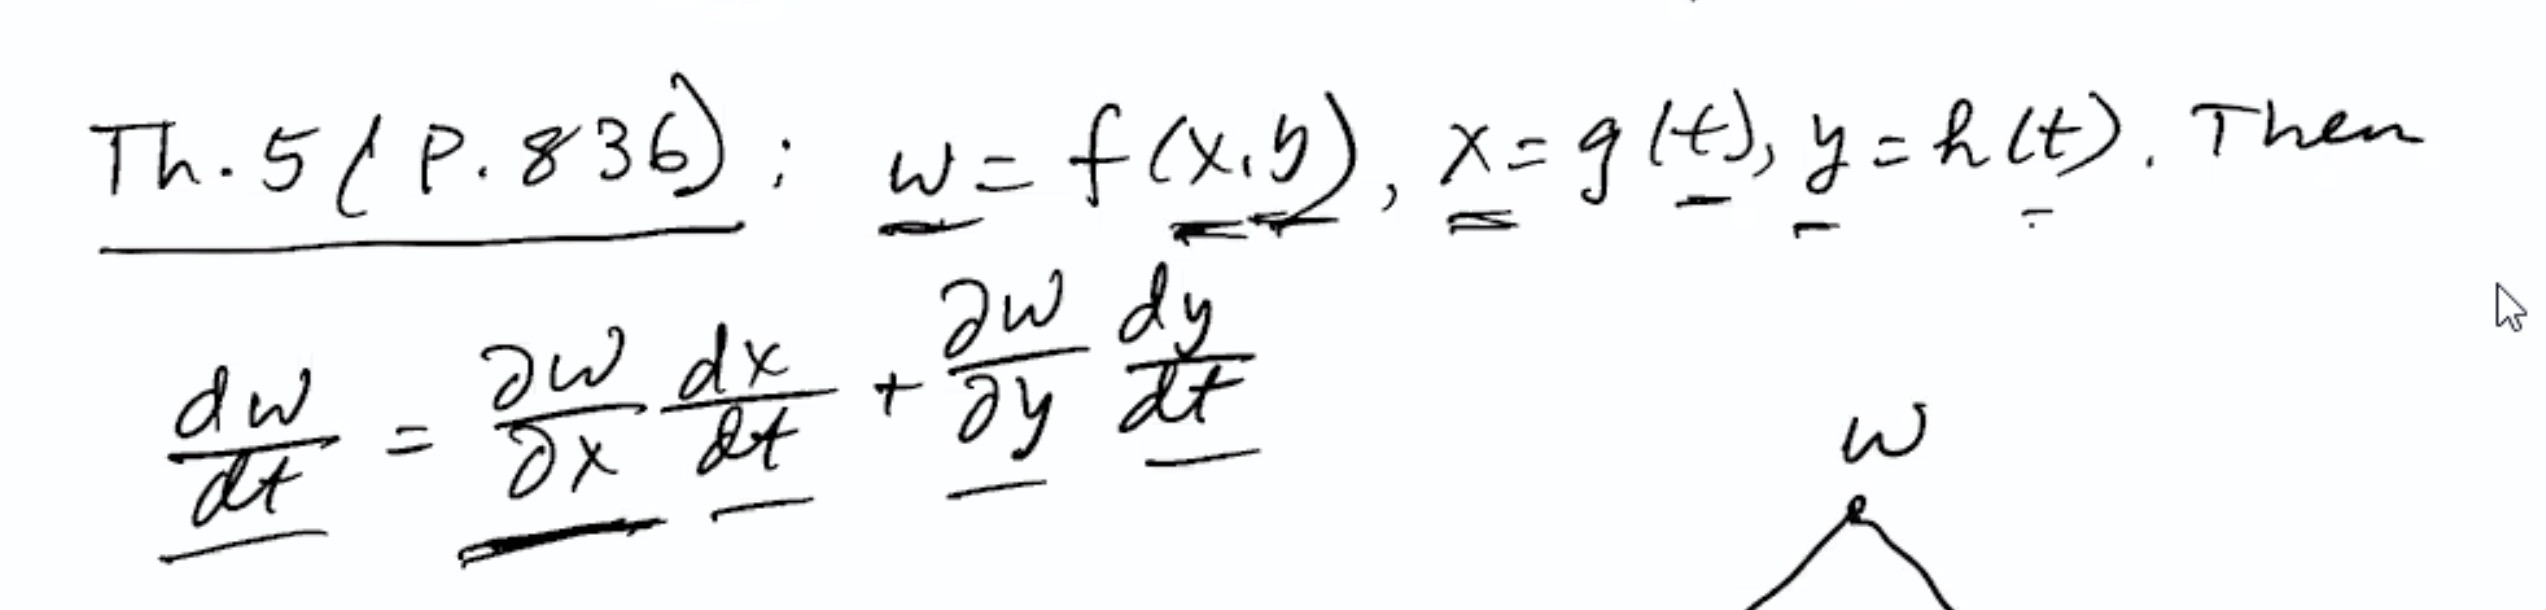 Th. 5 (P. 836): w = f(x,y), x = g(t), y = h(t). Then
dw/dt = ∂w/∂x dx/dt + ∂w/∂y dy/dt
w